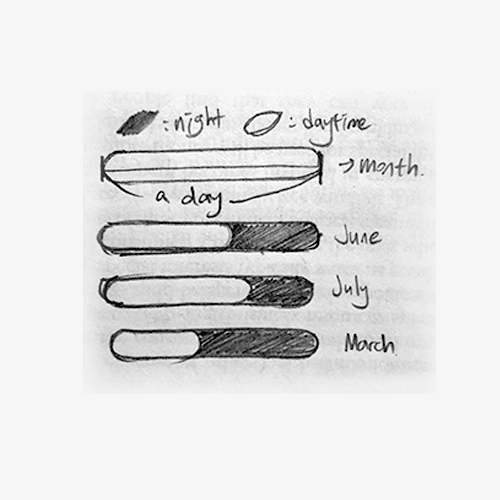 : night : daytime
→ month.
a day
June
July
March